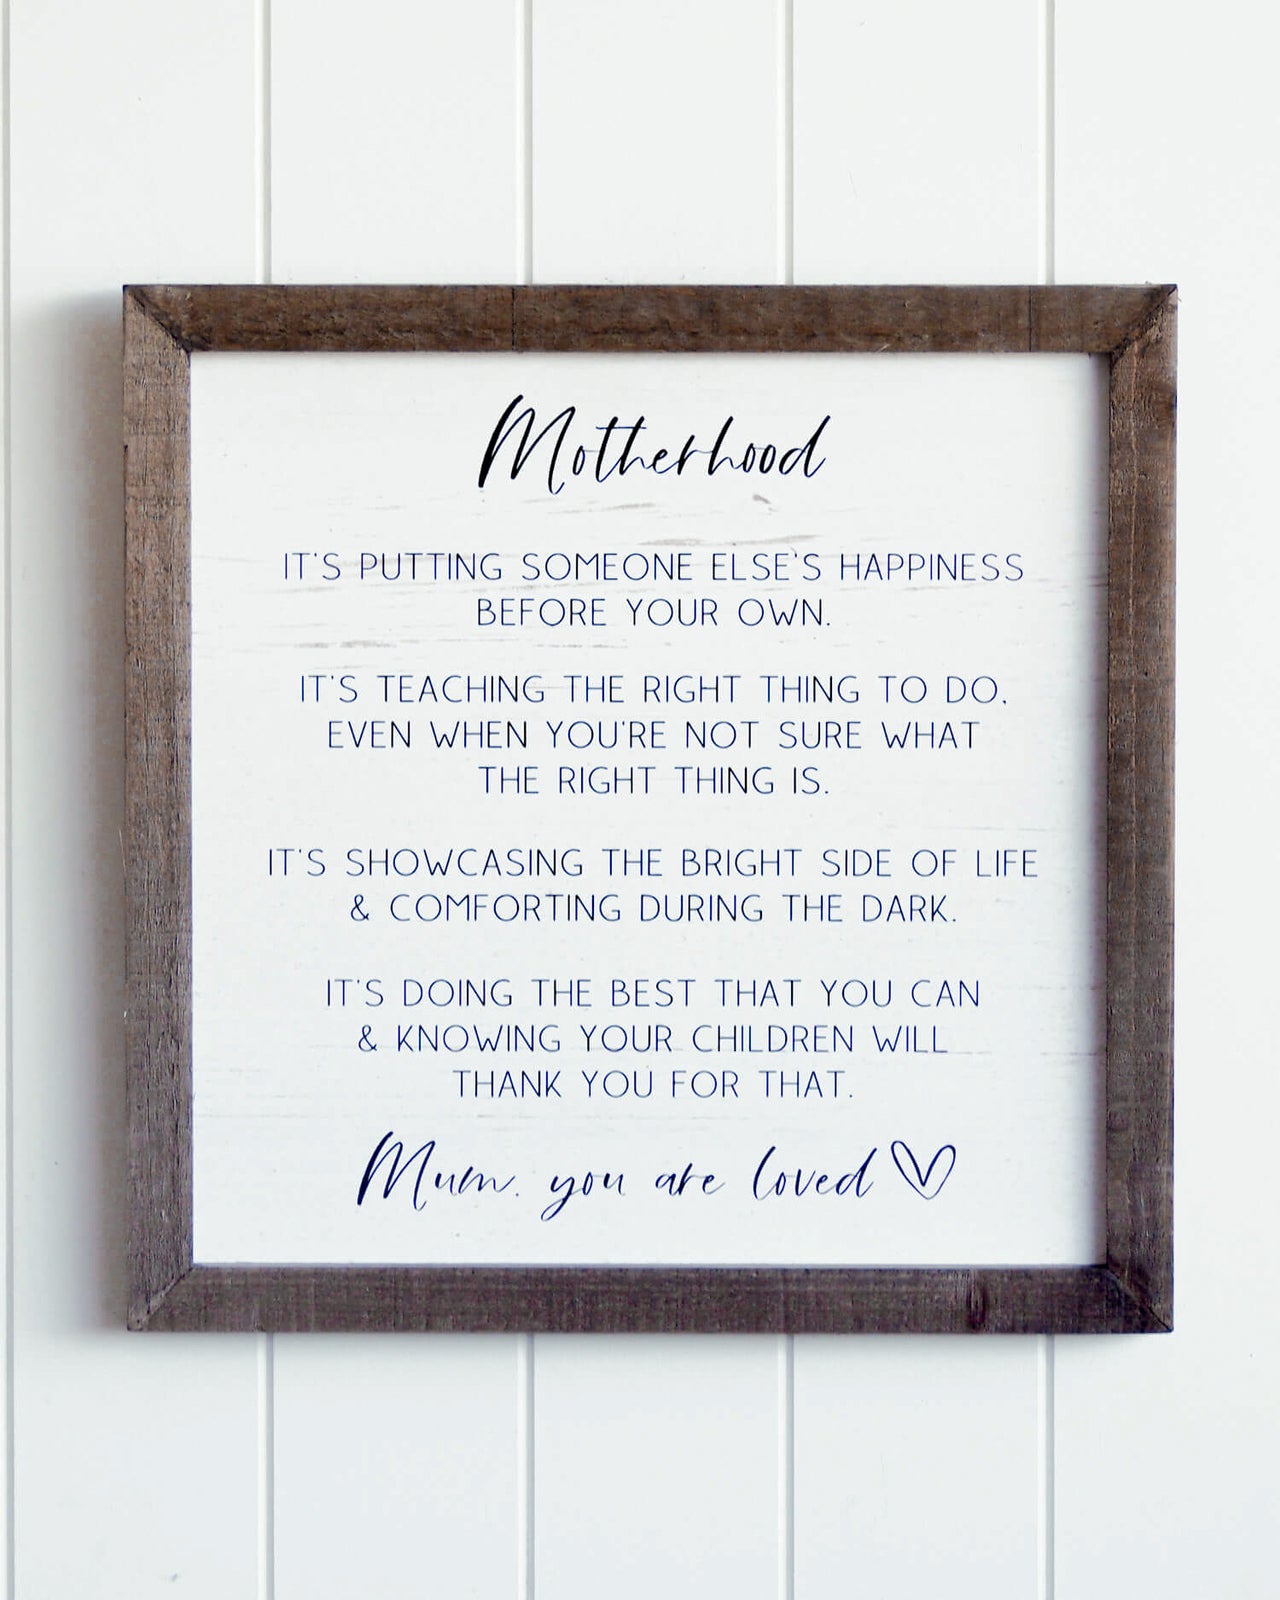 Motherhood
IT'S PUTTING SOMEONE ELSE'S HAPPINESS
BEFORE YOUR OWN.
IT'S TEACHING THE RIGHT THING TO DO,
EVEN WHEN YOU'RE NOT SURE WHAT
THE RIGHT THING IS.
IT'S SHOWCASING THE BRIGHT SIDE OF LIFE
& COMFORTING DURING THE DARK.
IT'S DOING THE BEST THAT YOU CAN
& KNOWING YOUR CHILDREN WILL
THANK YOU FOR THAT.
Mum, you are loved